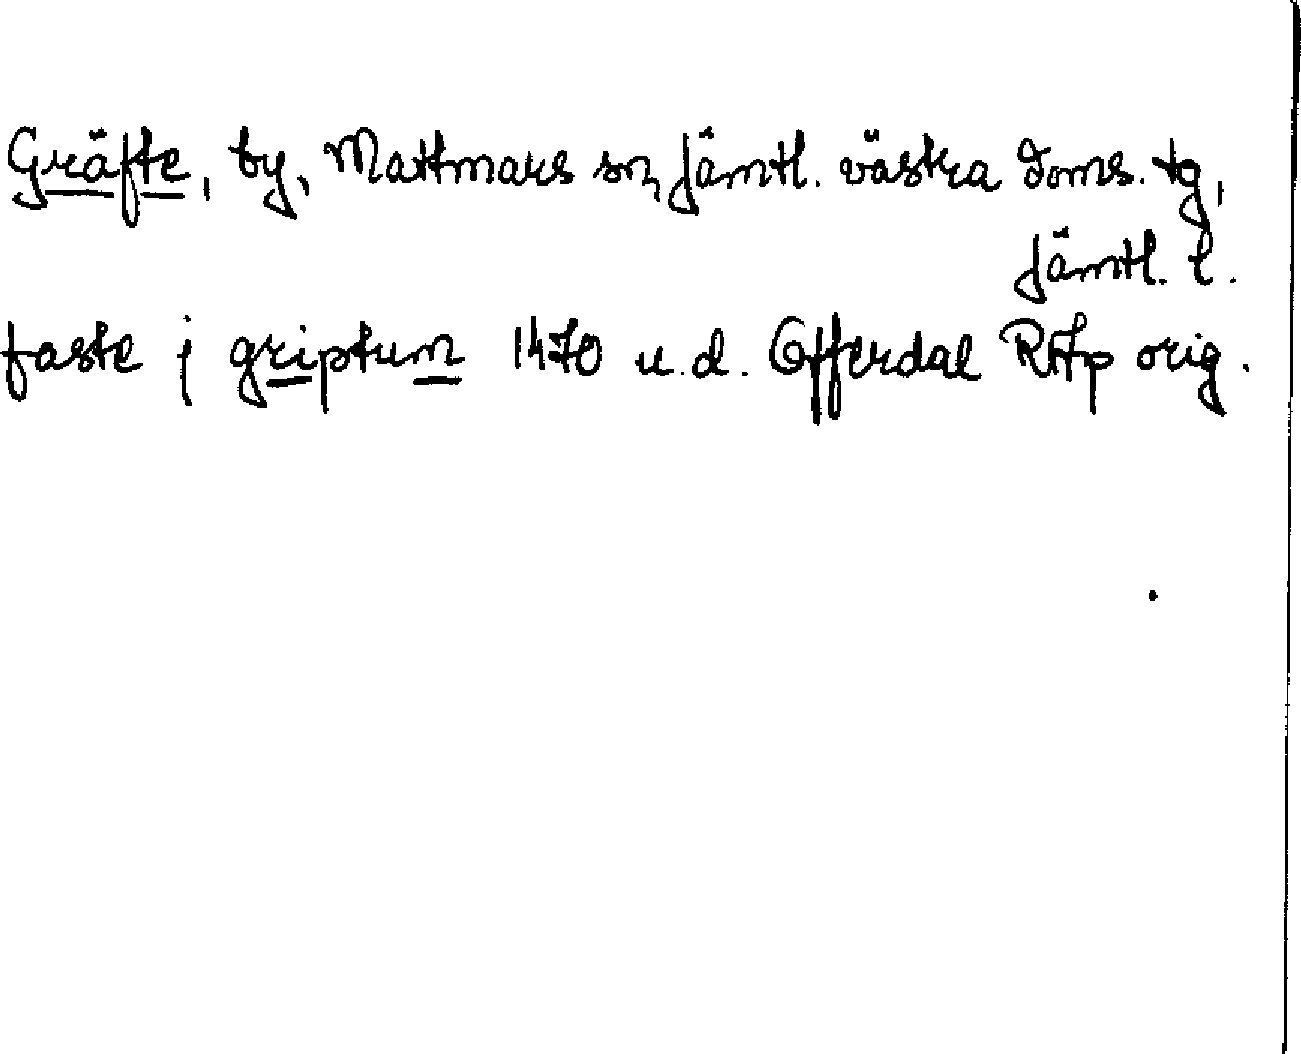 Gräfte, by, Mattmars sn, Jämtl. västra doms. tg,
Jämtl. l.
faste j griptum 1470 u.d. Offerdal RAp orig.